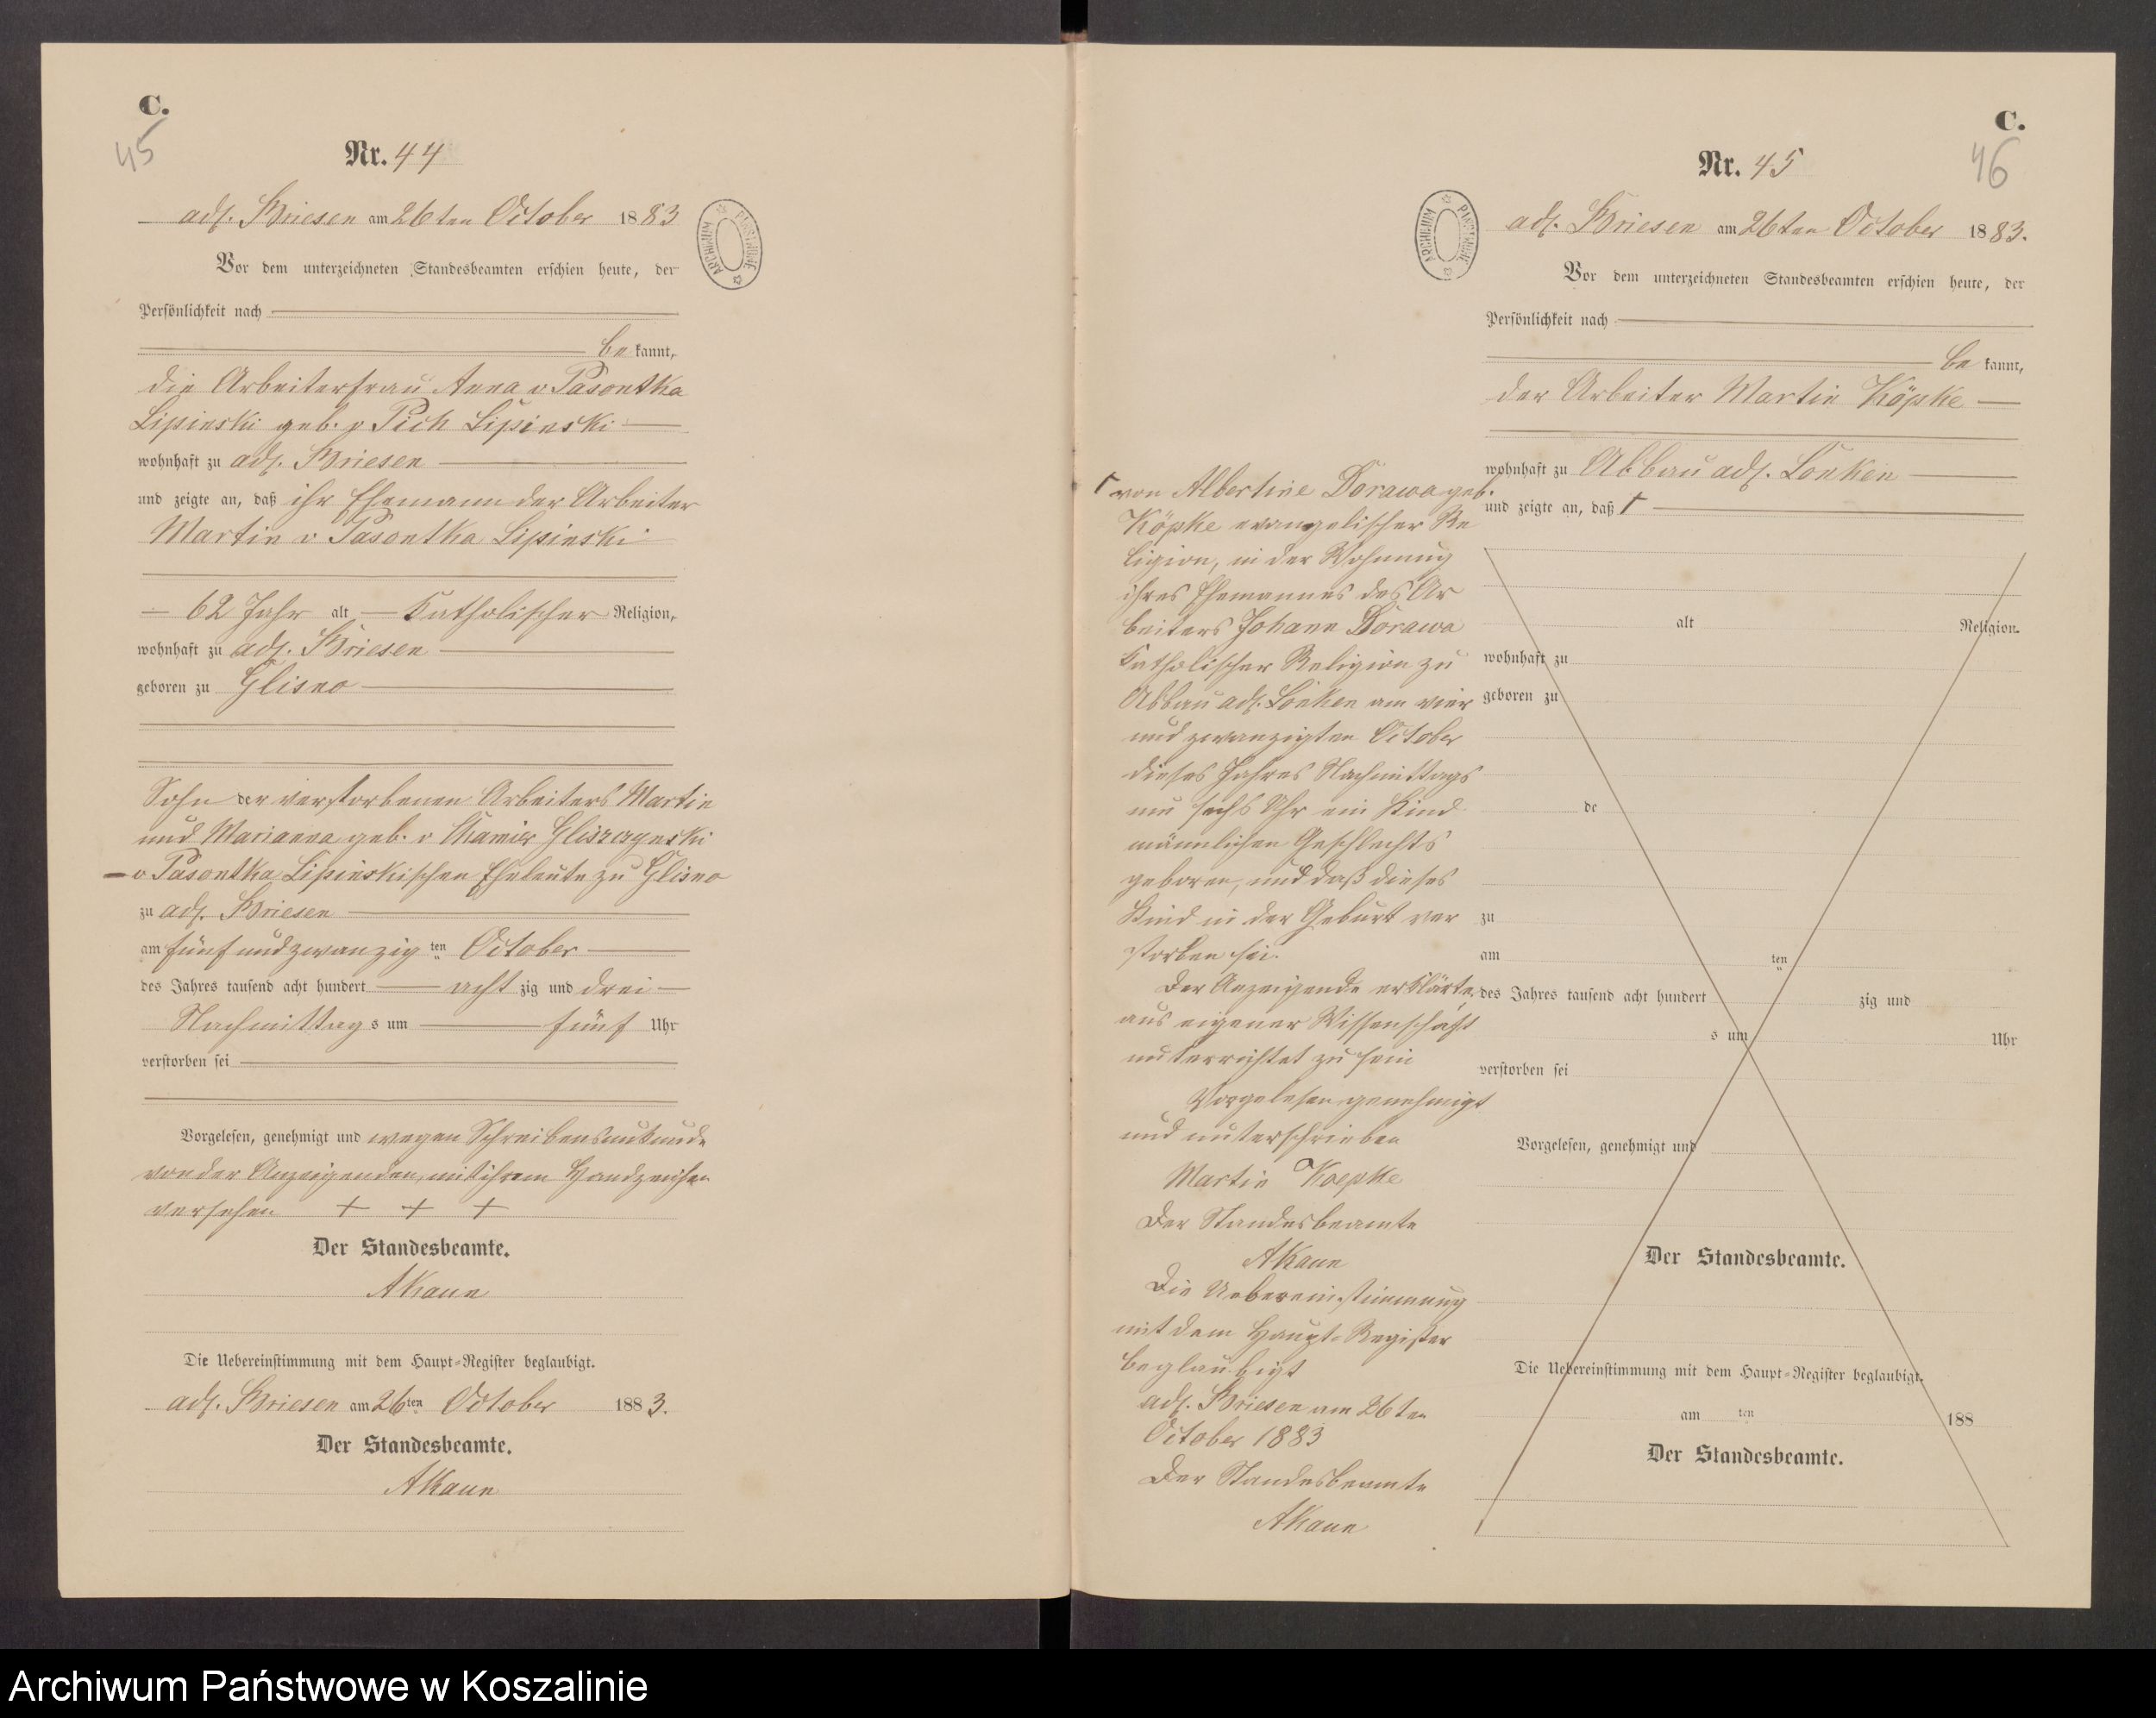 C.
45
Nr. 44
adl. Briesen am 26ten October 1883
Vor dem unterzeichneten Standesbeamten erschien heute, der
Persönlichkeit nach
be kannt,
die Arbeiterfrau Anna v Pasontka
Lipinski geb. v Pich Lipinski
wohnhaft zu adl. Briesen
und zeigte an, daß ihr Ehemann der Arbeiter
Martin v Pasontka Lipinski
62 Jahr alt Katholischer Religion,
wohnhaft zu adl. Briesen
geboren zu Glisno
Sohn der verstorbenen Arbeiters Martin
und Marianna geb. v Gliszczynski
v Pasontka Lipinskischen Eheleute zu Glisno
zu adl. Briesen
am fünf und zwanzig ten October
des Jahres tausend acht hundert acht zig und drei
Nachmittag s um fünf Uhr
verstorben sei
Vorgelesen, genehmigt und wegen Schreibensunkunde
von der Anzeigenden mit ihrem Handzeichen
versehen + + +
Der Standesbeamte.
AKaun
Die Uebereinstimmung mit dem Haupt-Register beglaubigt.
adl. Briesen am 26ten October 1883.
Der Standesbeamte.
AKaun
C.
46
Nr. 45
adl. Briesen am 26ten October 1883.
Vor dem unterzeichneten Standesbeamten erschien heute, der
Persönlichkeit nach
be kannt,
der Arbeiter Martin Köpke
wohnhaft zu Abbau adl. Lonken
und zeigte an, daß
von Albertine Dorawa geb.
Köpke evangelischer Re
ligion, in der Wohnung
ihres Ehemannes des Ar
beiters Johann Dorawa
Katholischer Religion zu
Abbau adl. Lonken am vier
und zwanzigten October
dieses Jahres Nachmittags
um sechs Uhr ein Kind
männlichen Geschlechts
geboren, und daß dieses
Kind in der Geburt ver
storben sei.
Der Anzeigende erklärte,
aus eigener Wissenschaft
unterrichtet zu sein
Vorgelesen genehmigt
und unterschrieben
Martin Koepke
Der Standesbeamte
AKaun
Die Uebereinstimmung
mit dem Haupt-Register
beglaubigt
adl. Briesen am 26ten
October 1883
Der Standesbeamte
AKaun
alt Religion.
wohnhaft zu
geboren zu
de
zu
am ten
des Jahres tausend acht hundert zig und
s um Uhr
verstorben sei
Vorgelesen, genehmigt und
Der Standesbeamte.
Die Uebereinstimmung mit dem Haupt-Register beglaubigt.
am ten 188
Der Standesbeamte.
ARCHIWUM PAŃSTWOWE
ARCHIWUM PAŃSTWOWE
Archiwum Państwowe w Koszalinie